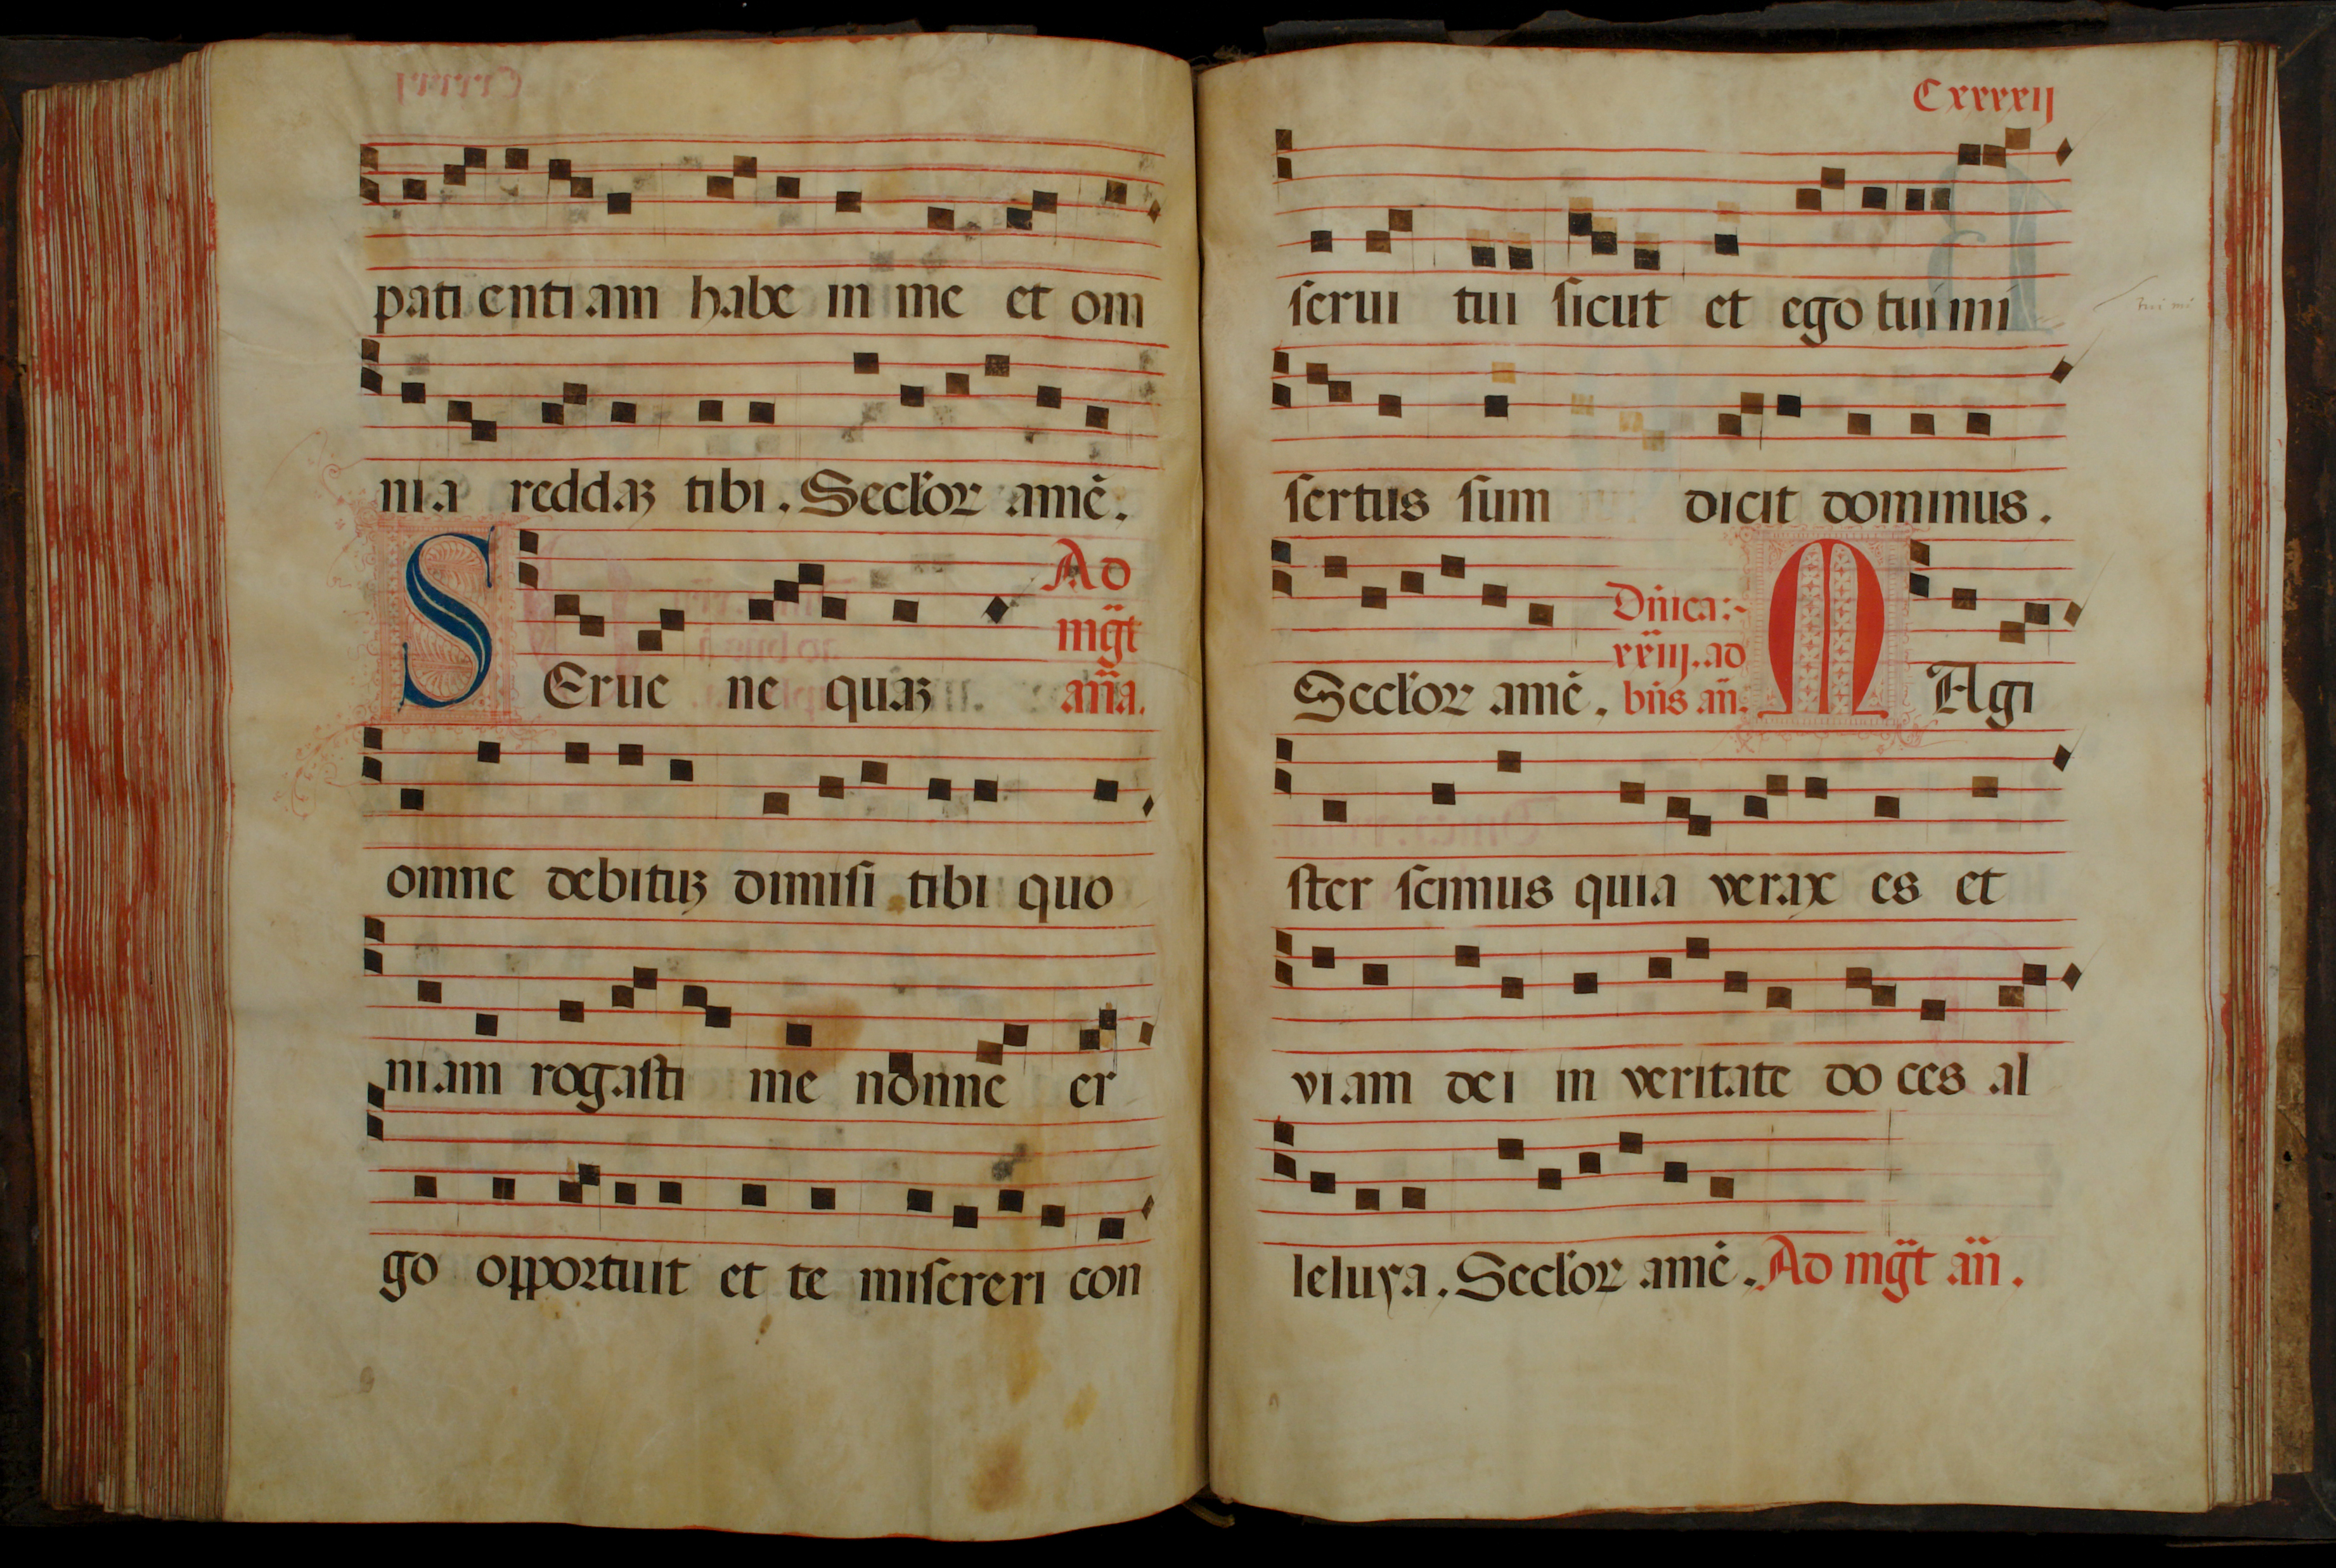 pati enti am habe in me et om
nia reddaꝫ tibi. Secl'oꝝ amē.
Ad
mg̈t
SEruc ne quaꝫ an̄a.
omne debituꝫ dimisi tibi quo
niam rogasti me nonne er
go opportuit et te misereri con
Cxxxxij
serui tui sicut et ego tui mi
tui mi
sertus sum dicit dominus.
Dn̄ica:~
xxiij. ad
Secl'oꝝ amē. bn̄s an̄. MAgi
ster scimus quia verax es et
viam dei in veritate do ces al
leluya. Secl'oꝝ amē. Ad mg̈t an̄.